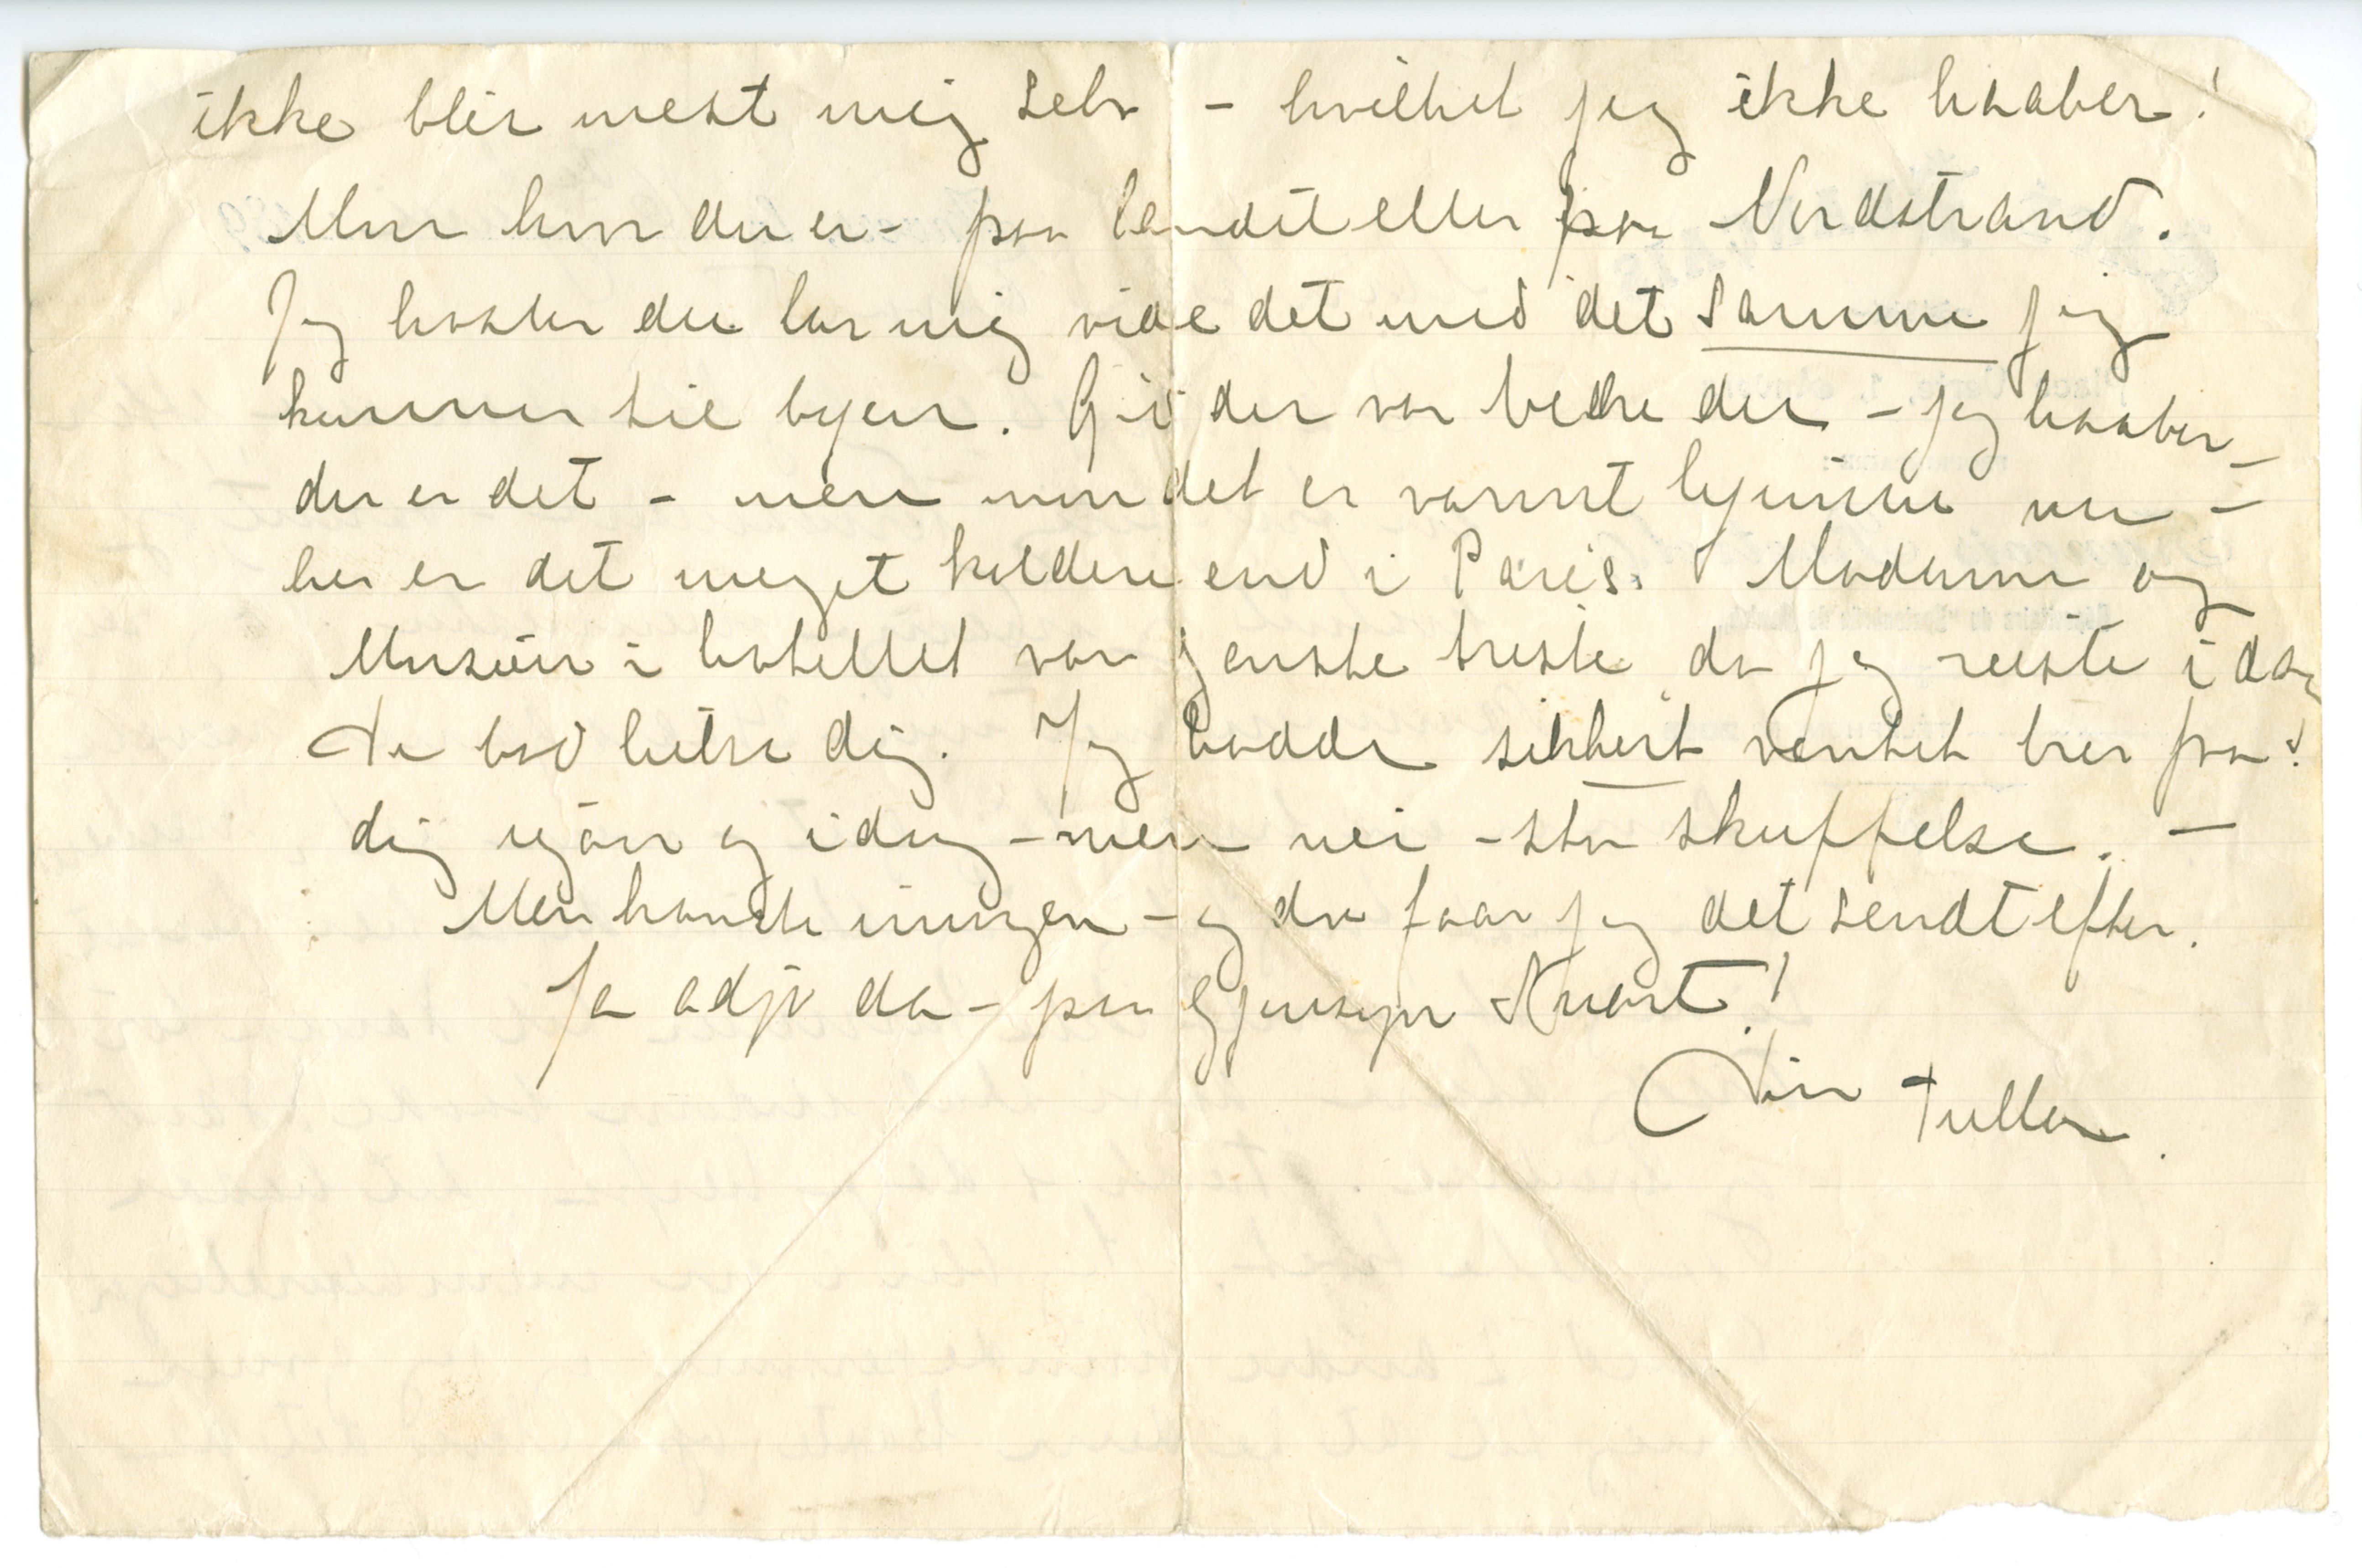 ikke blir mest mig selv - hvilket jeg ikke haaber!
Mon hvor du er - paa landet eller paa Nordstrand.
Jeg haaber du lar mig vide det med det samme jeg
kommer til byen. Gid du var bedre du - jeg haaber -
du er det - men mon det er varmt hjemme nu -
her er det meget koldere end i Paris. Madame og
Musiør i hotellet var ganske triste da jeg reiste idag
De bad hilse dig. Jeg hadde sikkert ventet brev fra
dig igaar og idag - men nei - stor skuffelse. -
Men kanske imorgen - og da faar jeg det sendt efter.
Ja adjø da - paa gjensyn snart!
Din Tulla.